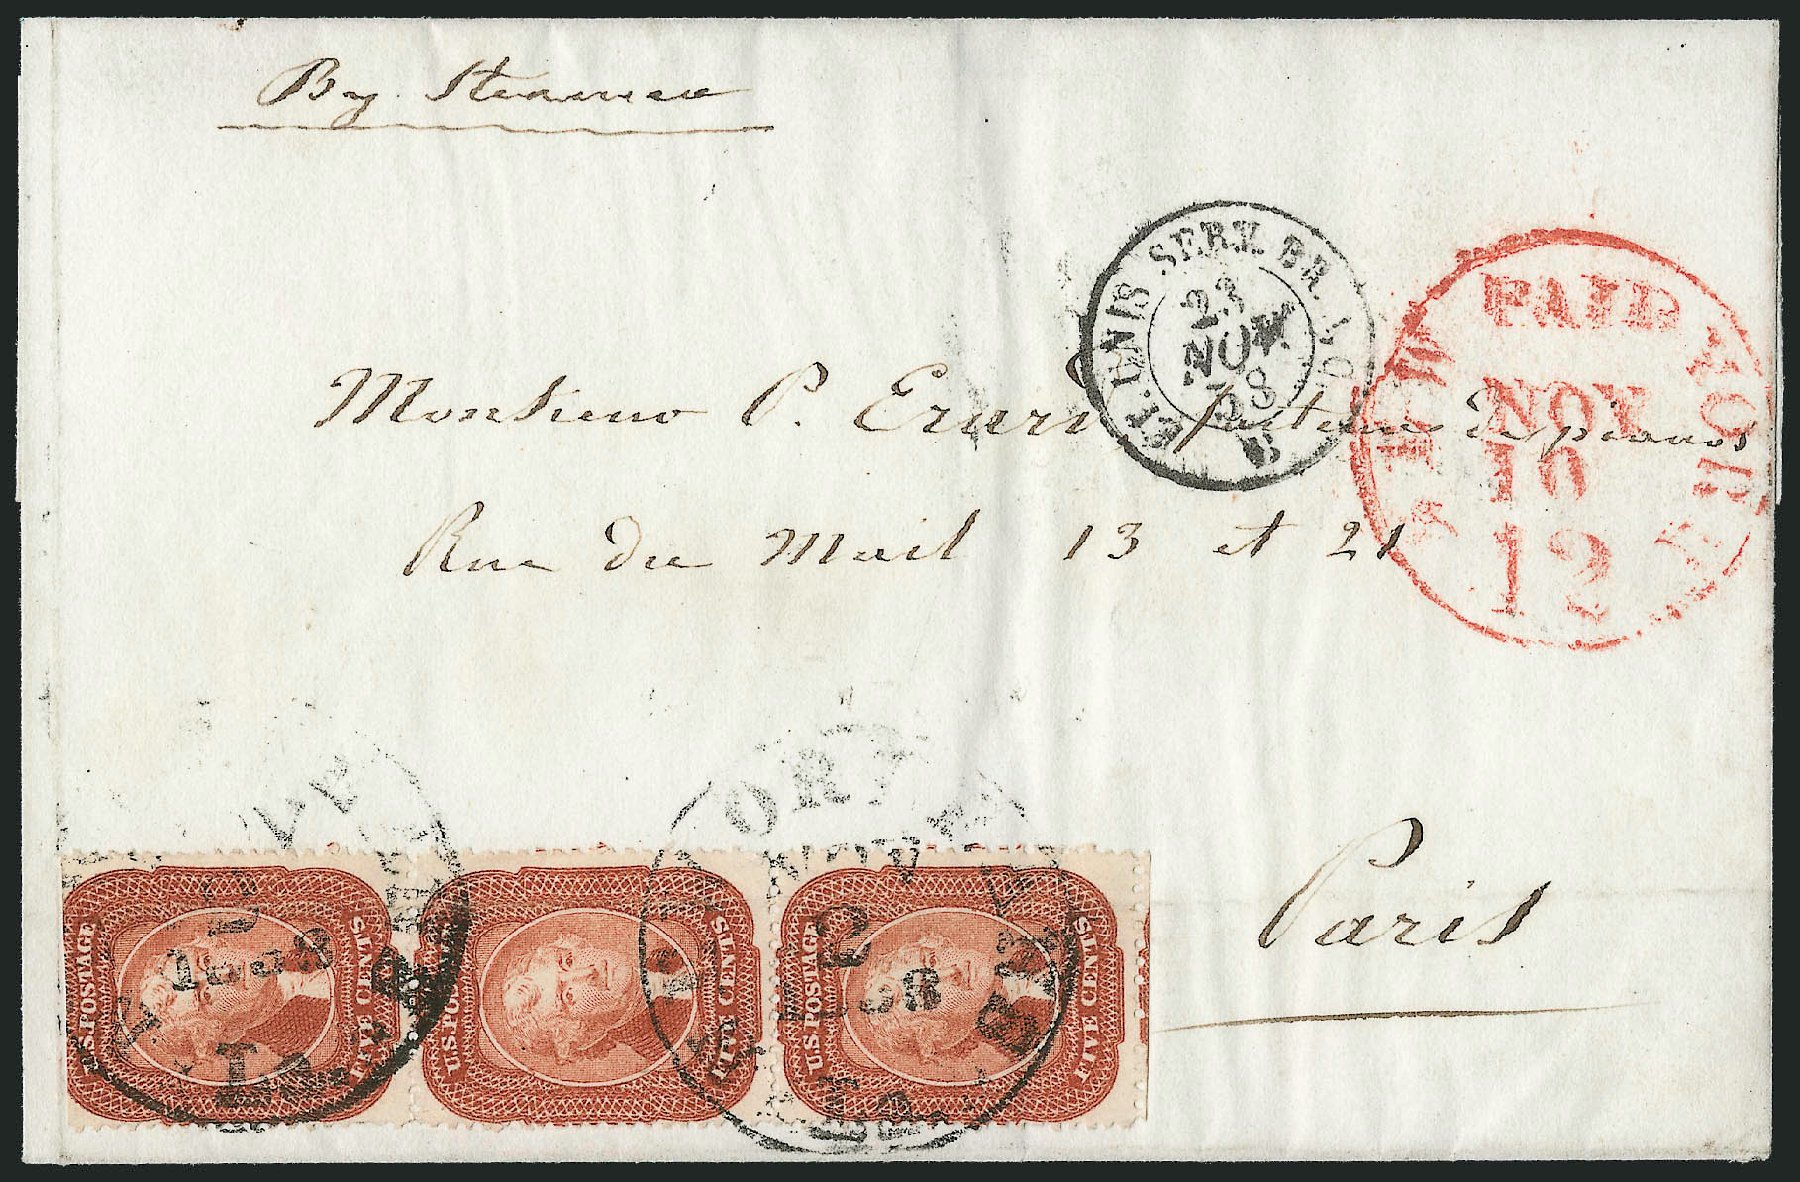 By Steamer
ET. UNIS SERV. BR. A. D.
23
NOV.
58
PAID
NEW YORK
NOV
16
12
Monsieur P. Erard facteur de pianos
Rue du Mail 13 et 21
Paris
U.S. POSTAGE
FIVE CENTS
1858
La.
U.S. POSTAGE
FIVE CENTS
U.S. POSTAGE
FIVE CENTS
2
1858
La.